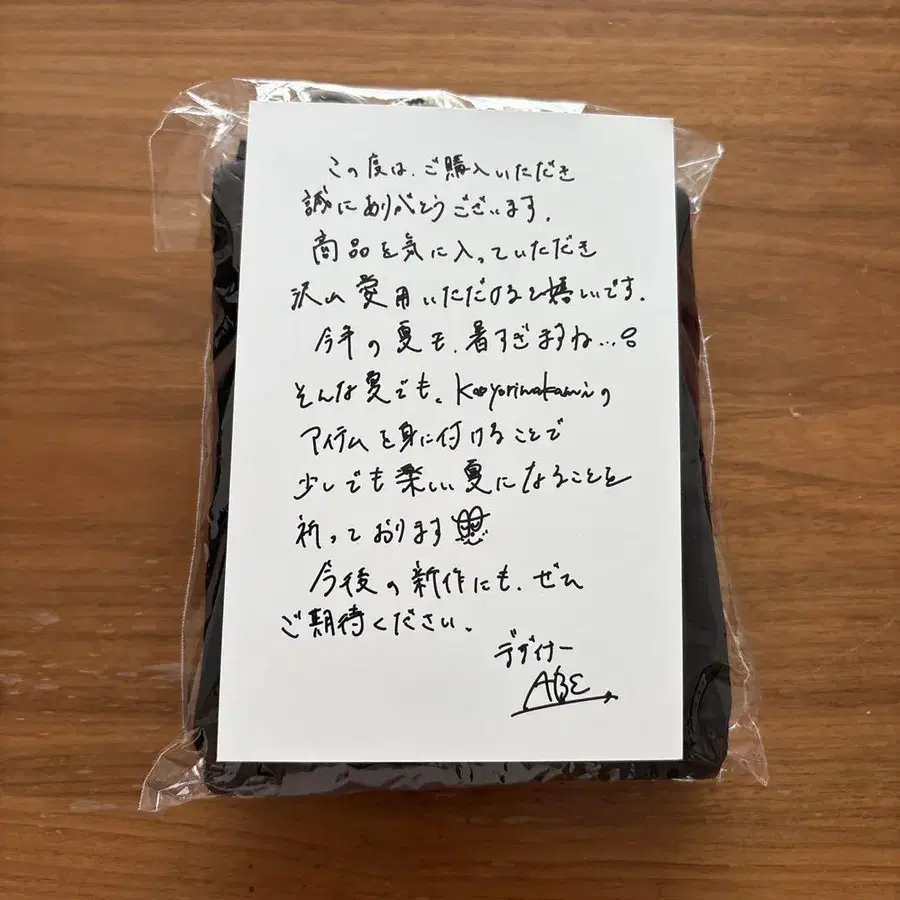 この度は、ご購入いただき
誠にありがとうございます。
商品を気に入っていただき
沢山愛用いただけると嬉しいです。
今年の夏も、暑すぎますね...。
そんな夏でも、Kooyorinakamiの
アイテムを身に付けることで
少しでも楽しい夏になることを
祈っております
今後の新作にも、ぜひ
ご期待ください。
デザイナー
ABE